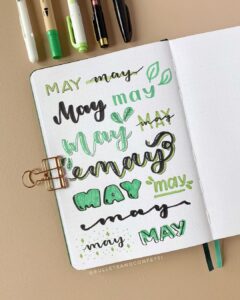 MAY may
May may
May MAY
may
MAY may
may
may MAY
@BULLETSANDCONFETTI